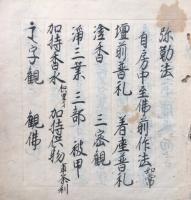 弥勒法
自房中至佛前作法如常
壇前普礼 着座普礼
塗香 三密観
浄三業 三部 被甲
加持香水 加持供物
𑖨字観 観佛